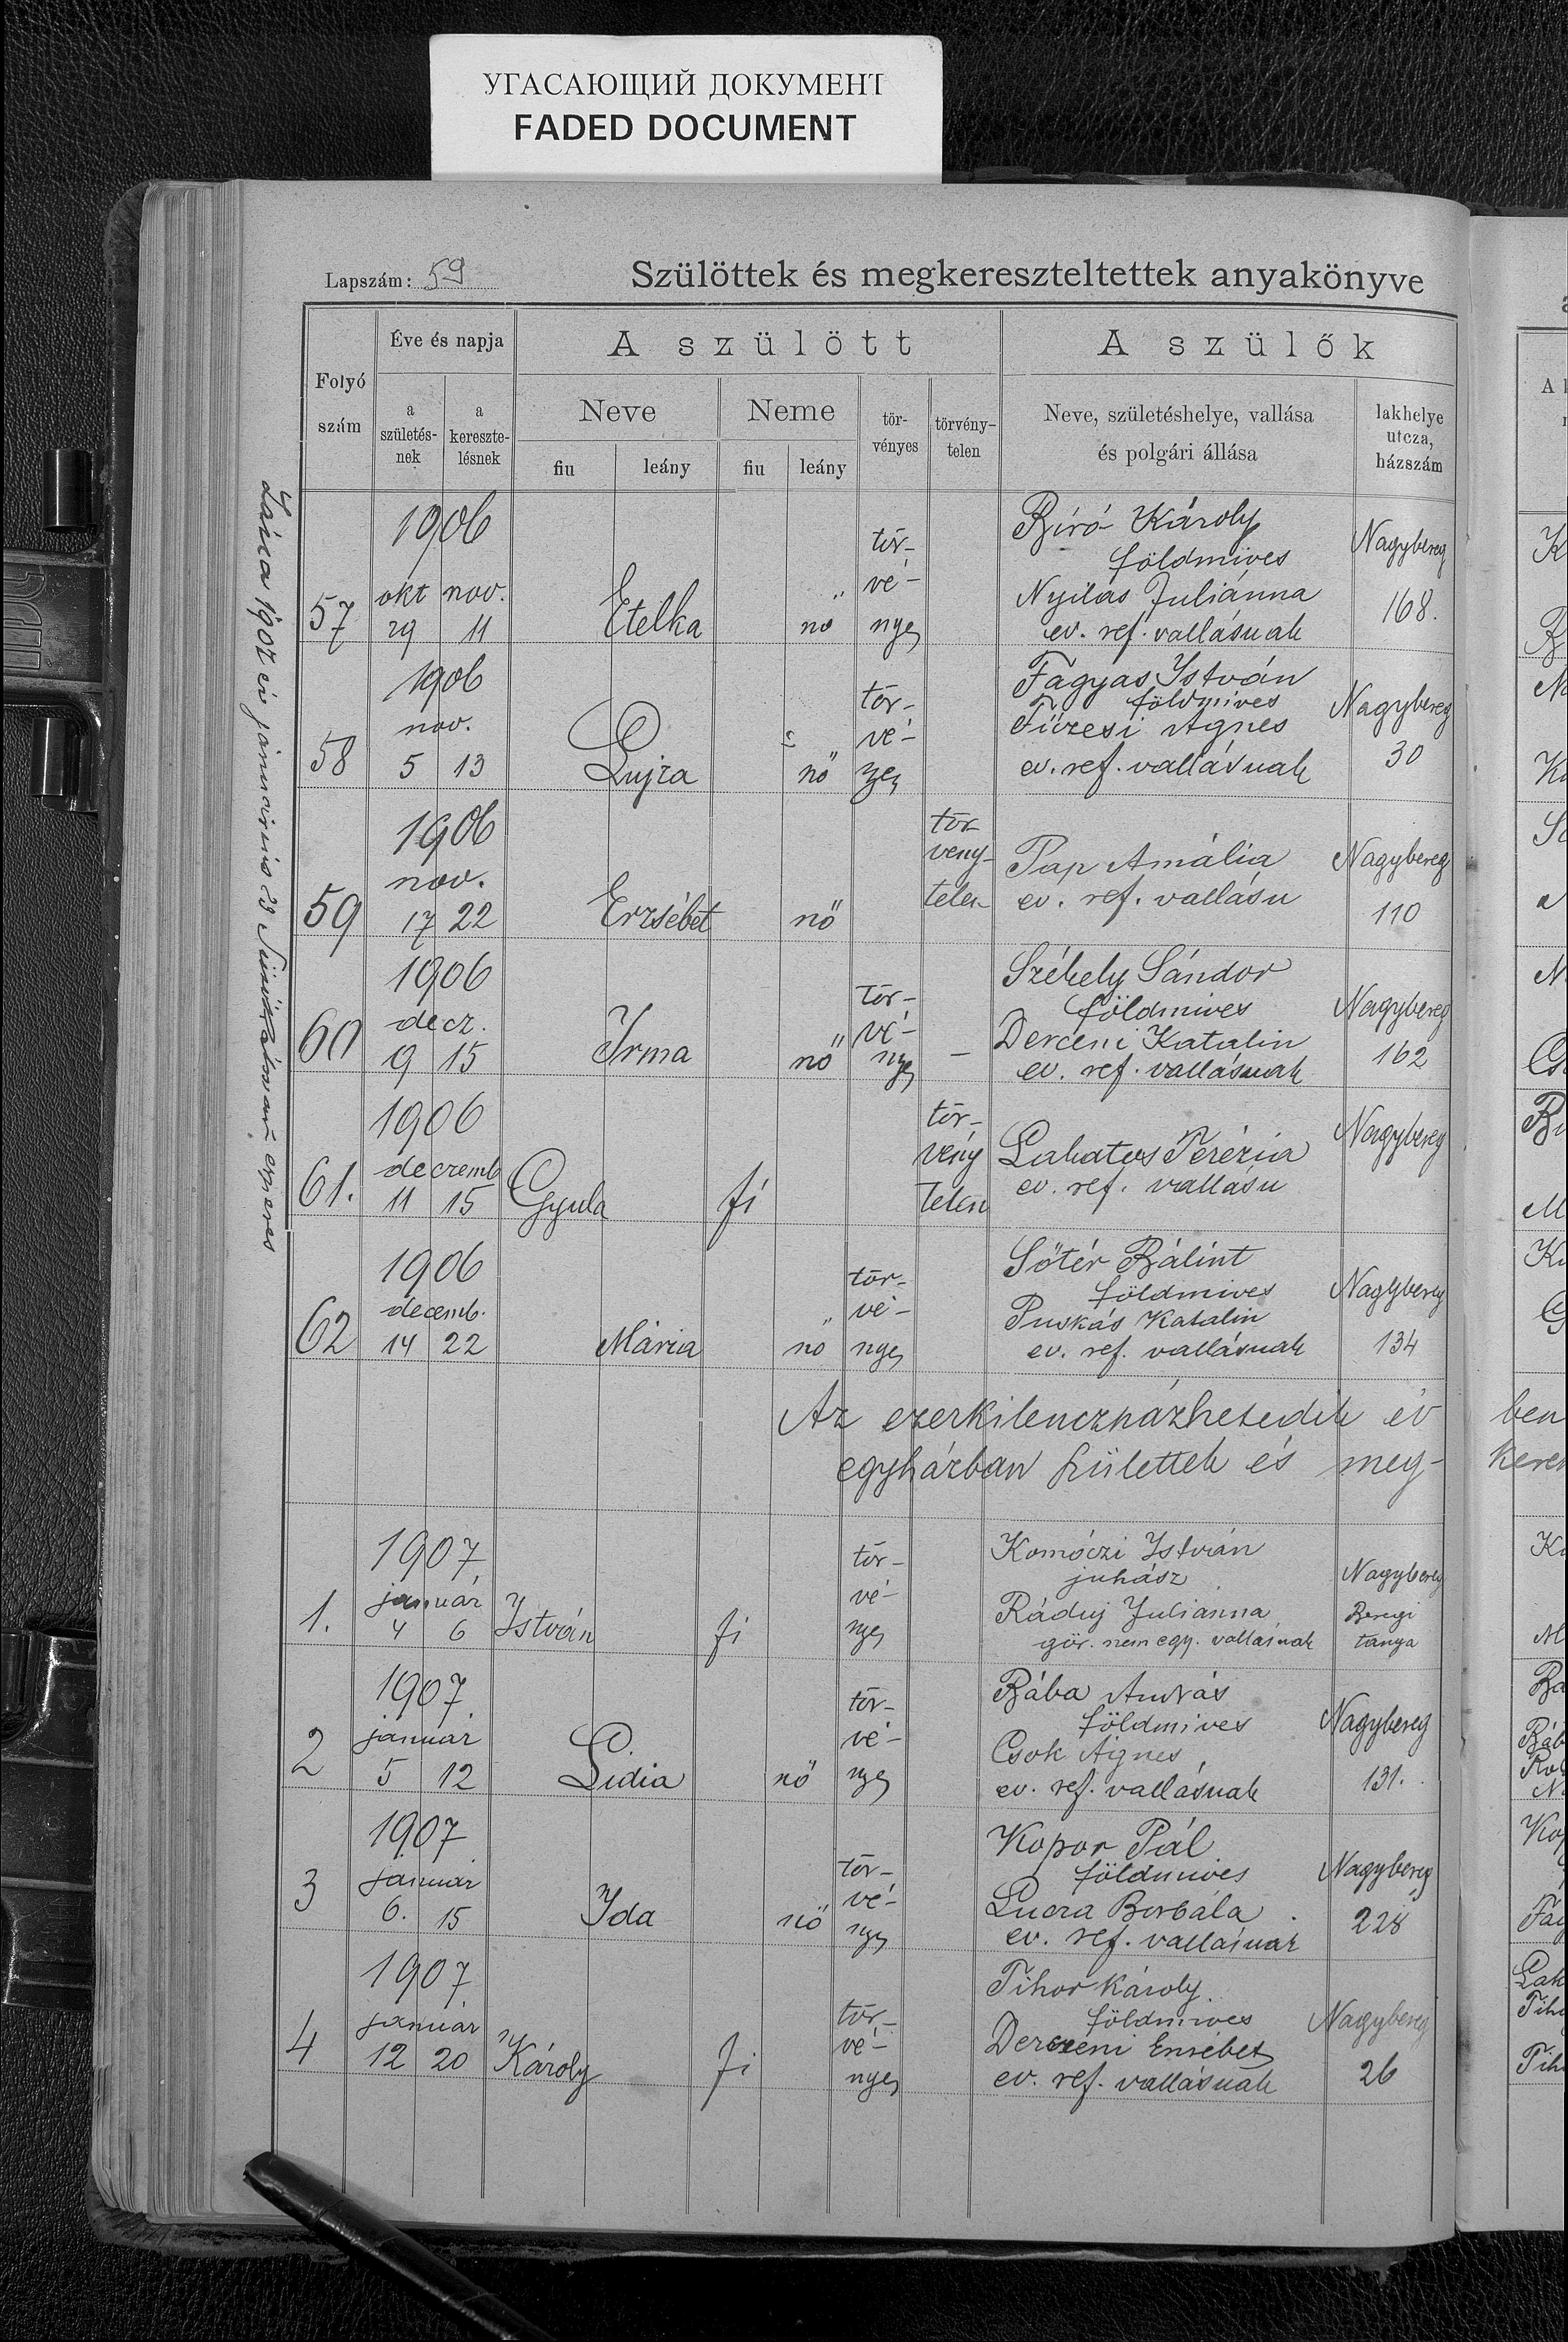 УГАСАЮЩИЙ ДОКУМЕНТ
FADED DOCUMENT
Lapszám: 59
Szülöttek és megkereszteltettek anyakönyve
Folyó szám
Éve és napja
a születés-nek
a keresztelésnek
A szülött
Neve
fiu
leány
Neme
fiu
leány
tör-vényes
törvény-telen
A szülők
Neve, születéshelye, vallása
és polgári állása
lakhelye
utcza,
házszám
57
1906
okt nov.
29 11
Etelka
nő
tör-
vé-
nyes
Bíró Károly
földmives
Nyilas Juliánna
ev. ref. vallásuak
Nagybereg
168.
58
1906
nov.
5 13
Lujza
nő
tör-
vé-
Fagyas István
földmives
Füzesi Ágnes
ev. ref. vallásuak
Nagybereg
30
59
1906
nov.
17 22
Erzsébet
nő
tör
veny-
telen
Pap Amália
ev. ref. vallásu
Nagybereg
110
60
1906
decz.
9 15
Irma
nő
tör-
vé-
nyes
-
Székely Sándor
földmives
Derceni Katalin
ev. ref. vallásuak
Nagybereg
162
61.
1906
deczemb
11 15
Gyula
fi
tör-
vény
telen
Lakatos Terézia
ev. ref. vallásu
Nagybereg
62
1906
decemb.
14 22
Mária
nő
tör-
vé-
nyes
Sőtér Bálint
földmives
Puskás Katalin
ev. ref. vallásuak
Nagybereg
134
Az ezerkilenczházhetedik év ben
egyházban születtek és meg-
1.
1907
január
4 6
István
fi
tör-
vé-
nyes
Komóczi István
juhász
Julianna
gör. nem egy. vallásuak
Nagybereg
Beregi
tanya
2
1907
január
5 12
Lidia
nő
tör-
vé-
nyes
Bába András
földmives
Csok Ágnes
ev. ref. vallásuak
Nagybereg
131.
3
1907
január
6. 15
Ida
nő
tör-
vé-
nyes
Kopor Pál
földmives
Borbála
ev. ref. vallásuak
Nagybereg
228
4
1907
január
12 20
Károly
fi
tör-
vé-
nyes
Tihor Károly
földmives
Derczeni Erzsébet
ev. ref. vallásuak
Nagybereg
26